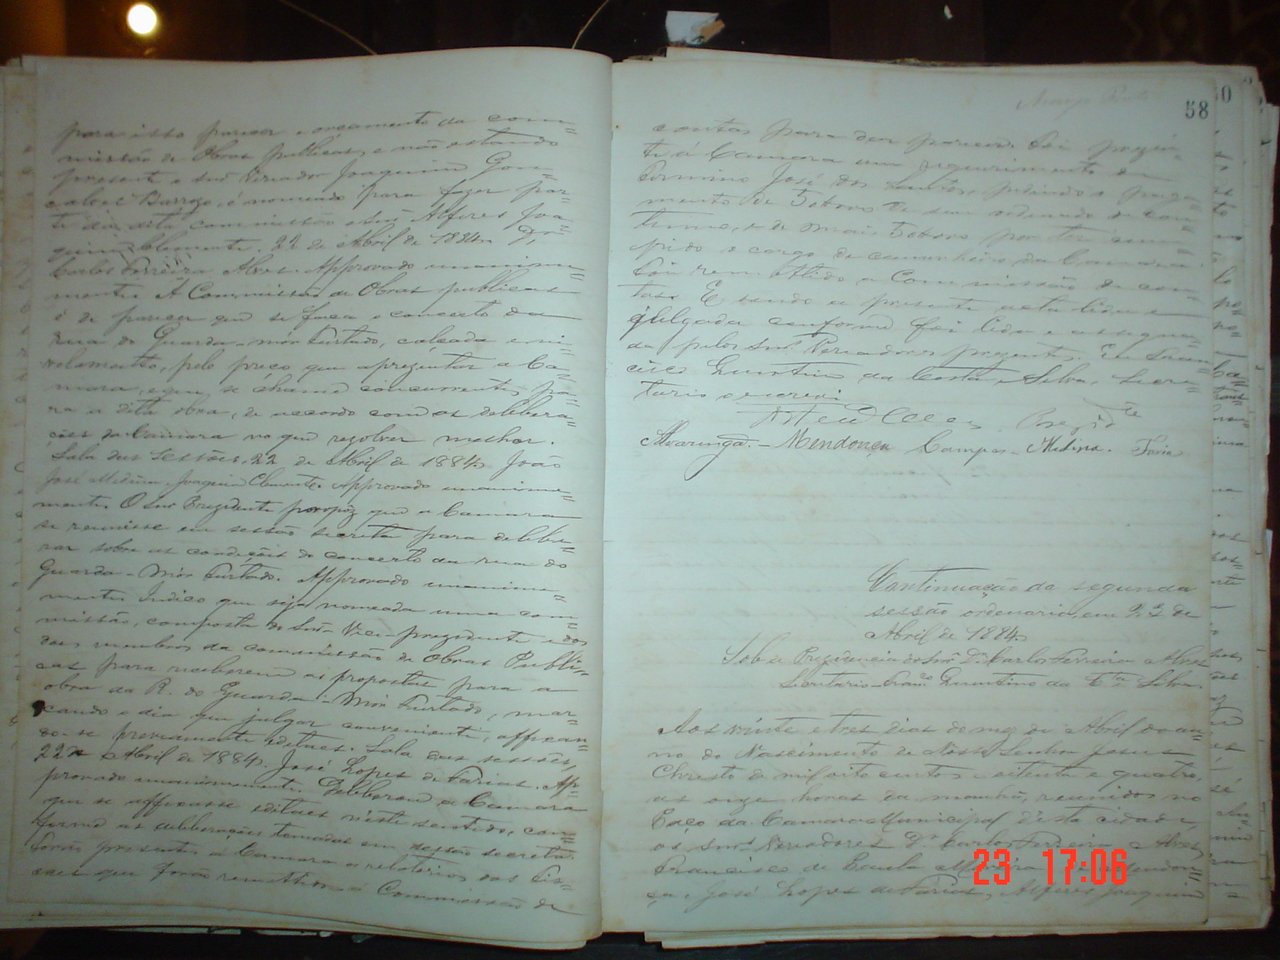 para isso parecer e orçamento da com=
missão de Obras publicas, e não estando
presente o Snr Vereador Joaquim Gon=
calves Barrozo, é nomeado para fazer par=
te da dita commissão o Snr Alferes Joa=
quim Clemente, 22 de Abril de 1884. Dr
Carlos Ferreira Alves. Approvado unanime=
mente. A Commissão de Obras publicas
é de parecer que se faça o concerto da
rua do Guarda-mór Furtado, calçada e ni=
velamento, pelo preço que aprezentar a Ca=
mara, e que se chame concurrentes pa=
ra a dita obra, de accordo com as delibera=
ções da Camara no que rezolver melhor.
Sala das Sessões, 22 de Abril de 1884. João
José Medina. Joaquim Clemente. Approvado unanime=
mente. O Snr Prezidente propoz que a Camara
se reunisse em sessão secreta para delibe=
rar sobre as condições do concerto da rua do
Guarda-Mór Furtado. Approvado unanime=
mente. Indico que seja nomeada uma com=
missão, composta do Snr Vice-prezidente e dos
dois membros da commissão de Obras Publi=
cas para receberem as propostas para a
obra da R. do Guarda-Mór Furtado, mar=
cando o dia que julgar conveniente, affixan=
do-se previamente editaes. Sala das sessões,
22 Abril de 1884. José Lopes de Farias. Ap=
provado unanimemente. Deliberou a Camara
que se affixasse editaes n'este sentido, con=
forme as deliberações tomadas em sessão secreta.
Forão presentes á Camara os relatorios dos Fis=
caes que forão remettidos a Commissão de
58
contas para dar parecer. Foi prezen=
te á Camara um requerimento de
Firmino José dos Santos, pedindo o paga=
mento de
e de mais por ter cum=
prido o cargo de da Camara.
Foi remettido a Commissão de con=
tas. E sendo a prezente acta lida e
julgada conforme foi lida e assigna=
da pelos Snrs Vereadores prezentes. Eu Fran=
cisco Quintino da Costa e Silva, Secre=
tario escrevi
Alvarenga - Mendonça Campos - Medina. Faria
Continuação da segunda
sessão ordenaria, em 23 de
Abril de 1884.
Sob a Prezidencia do Snr Dr Carlos Ferreira Alves
Secretario Franco Quintino da Cta Silva
Aos vinte e tres dias do mez de Abril do an=
no do Nascimento de Nosso Senhor Jesus
Christo de mil oito centos e oitenta e quatro,
as onze horas da manhã, reunidos no
Paço da Camara Municipal d'esta cidade,
os Snrs Vereadores Dr Carlos Ferreira Alves,
Francisco de Paula Mendon=
ça, José Lopes de Farias, Alferes Joaquim
23 17:06